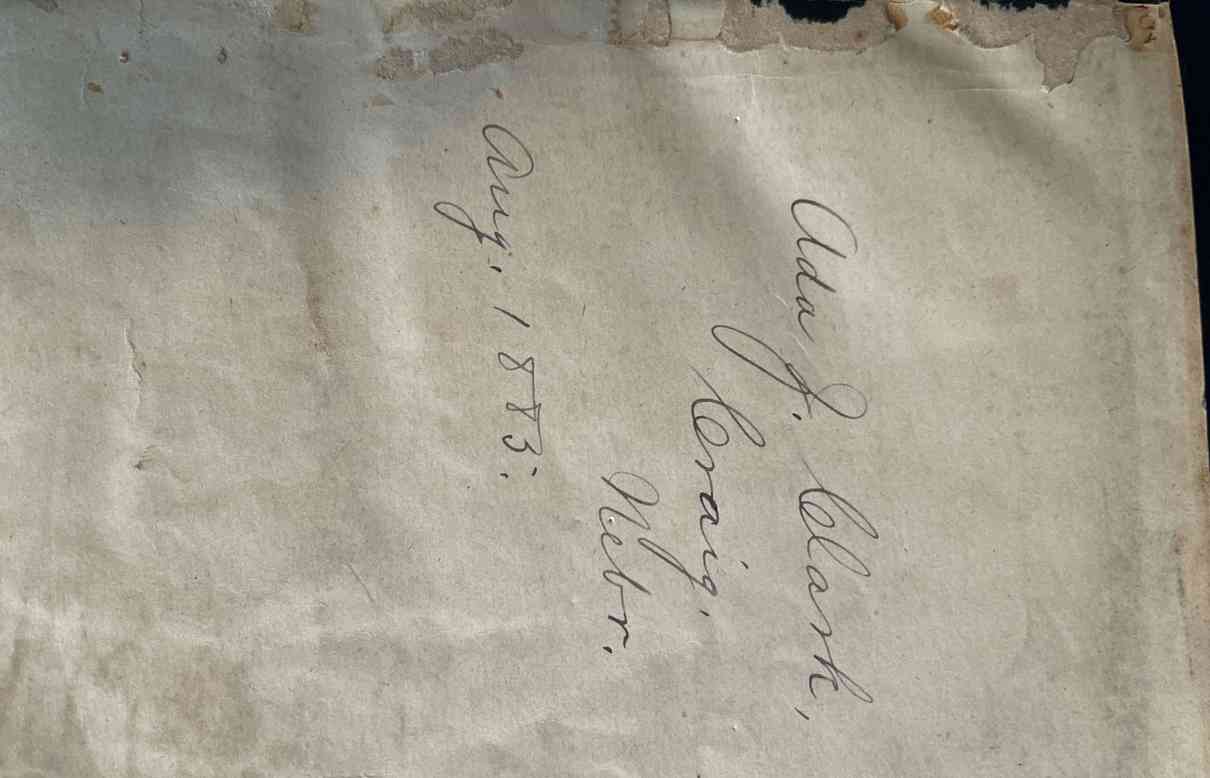 Ada J. Clark,
Craig.
Nebr.
Aug. 1883.